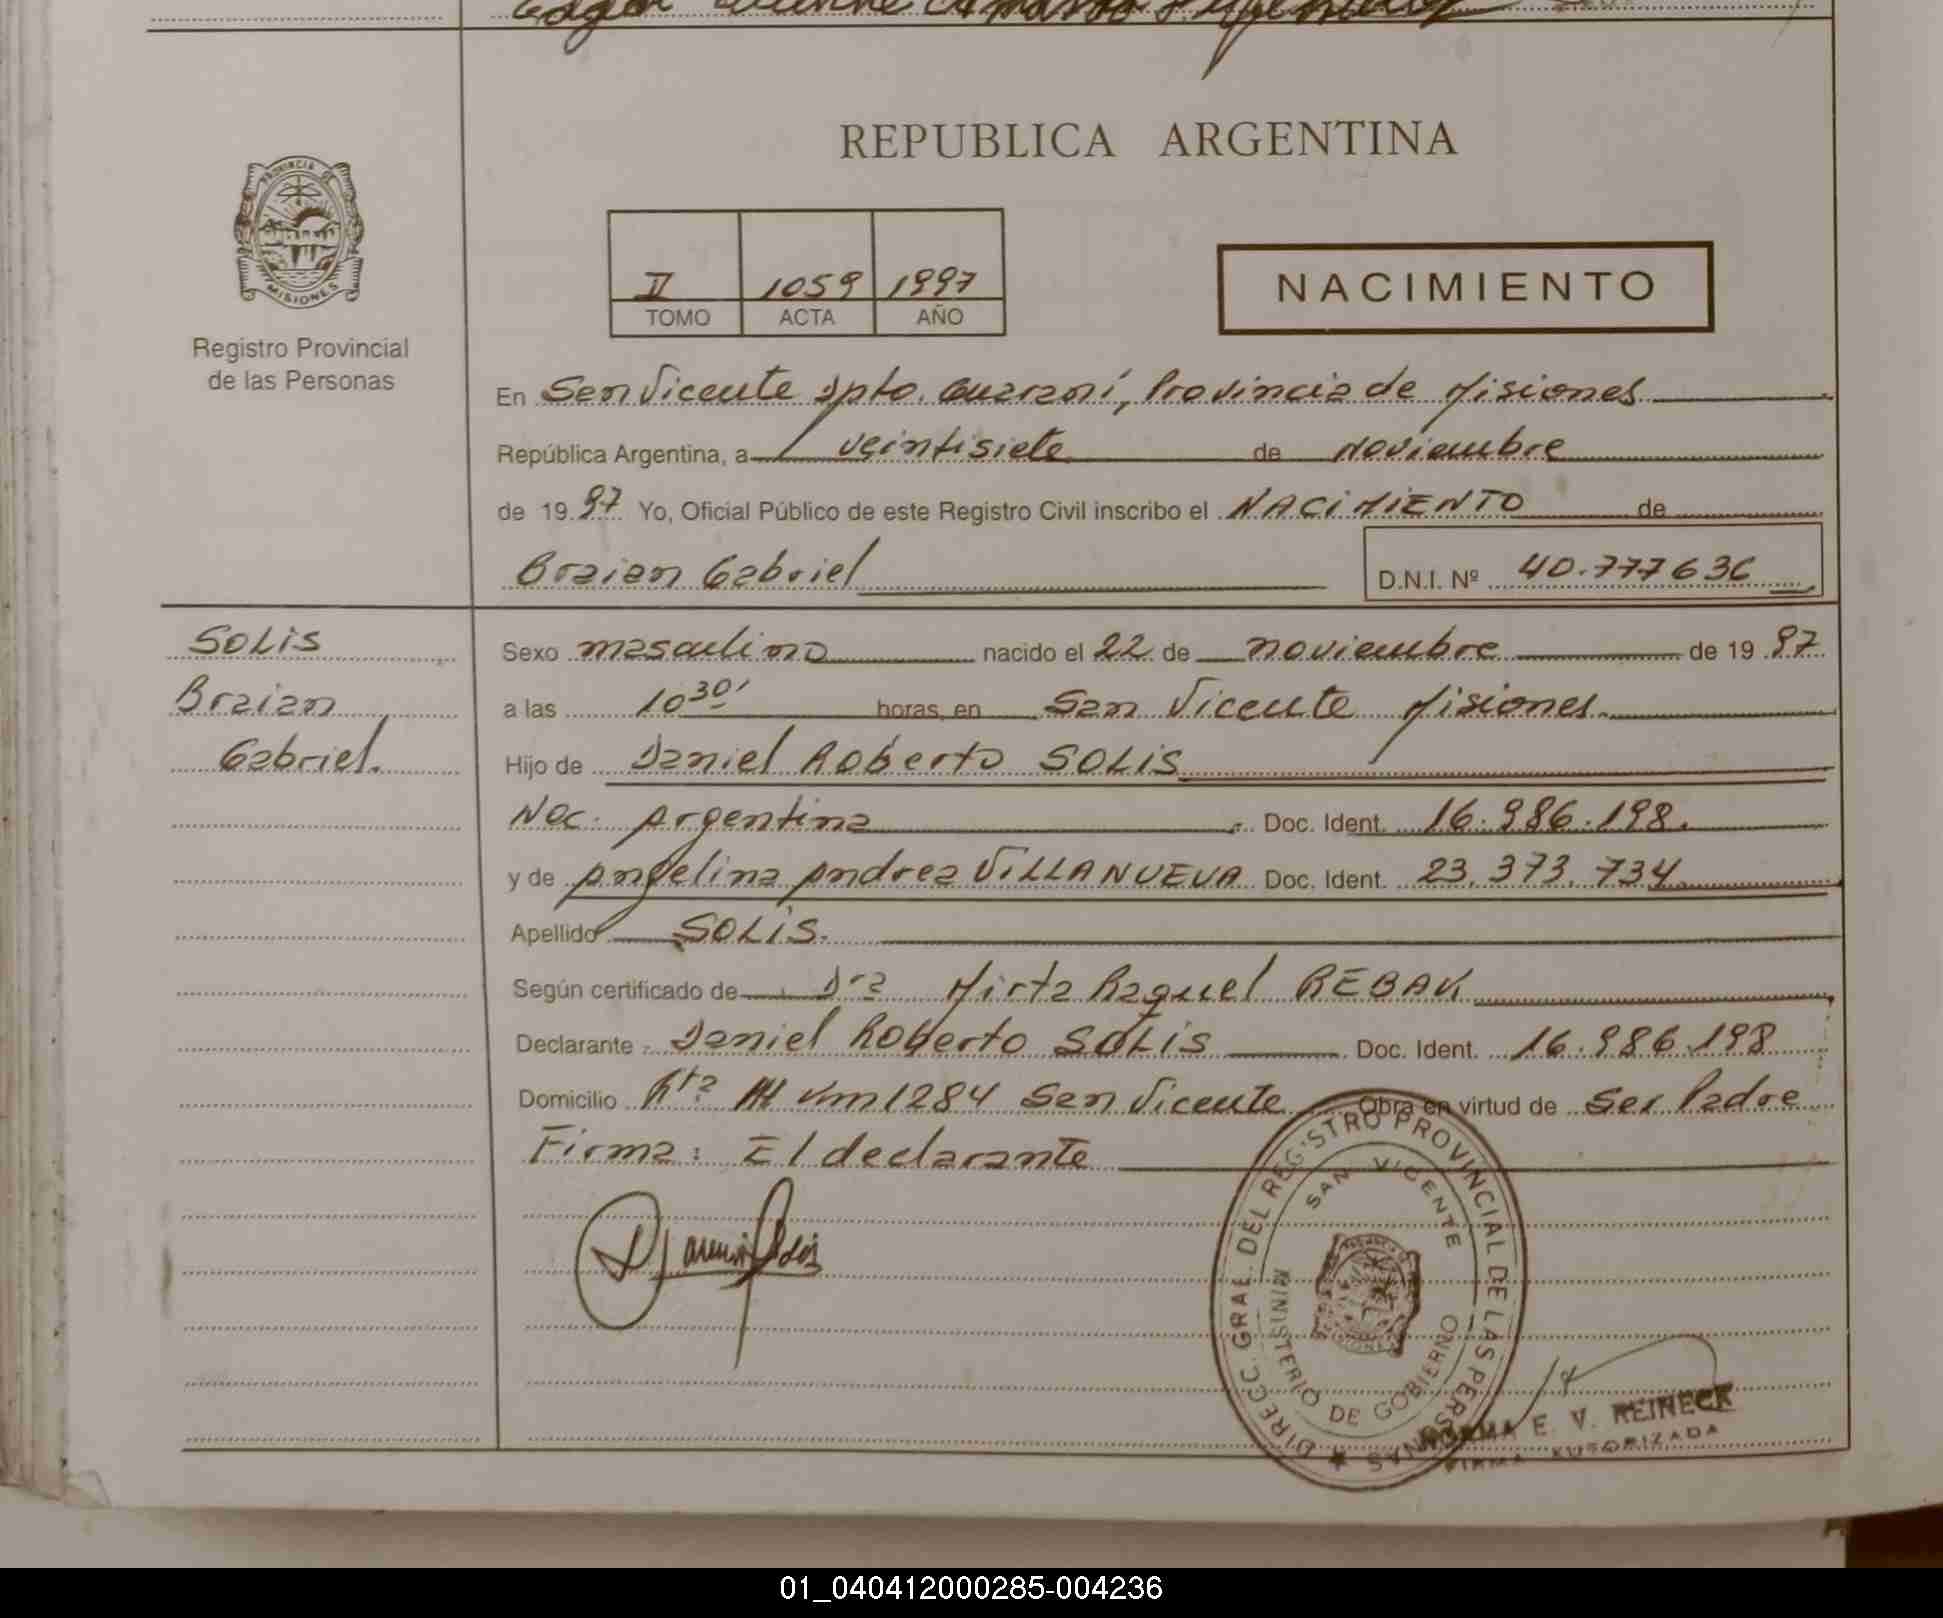 REPUBLICA ARGENTINA
PROVINCIA DE
MISIONES
Registro Provincial
de las Personas
II 1059 1997
TOMO ACTA AÑO
NACIMIENTO
En San Vicente Dpto. Guaraní, Provincia de Misiones
República Argentina, a veintisiete de Noviembre
de 19 97 Yo, Oficial Público de este Registro Civil inscribo el NACIMIENTO de
Braian Gabriel
D.N.I. Nº 40.777636
SOLIS
Braian
Gabriel.
Sexo masculino nacido el 22 de noviembre de 19 97
a las 10 30' horas, en San Vicente Misiones
Hijo de Daniel Roberto SOLIS
Nac. Argentina Doc. Ident. 16.986.198.
y de Angelina Andrea VILLANUEVA Doc. Ident. 23.373.734
Apellido SOLIS.
Según certificado de Dra Mirta Raquel REBAK
Declarante Daniel Roberto SOLIS Doc. Ident. 16.986.198
Domicilio Rta Km 1284 San Vicente Obra en virtud de Ser Padre
Firma: El declarante
DIRECC. GRAL. DEL REGISTRO PROVINCIAL DE LAS PERSONAS
SAN VICENTE
MINISTERIO DE GOBIERNO
NORMA E. V. REINECK
FIRMA AUTORIZADA
01_040412000285-004236